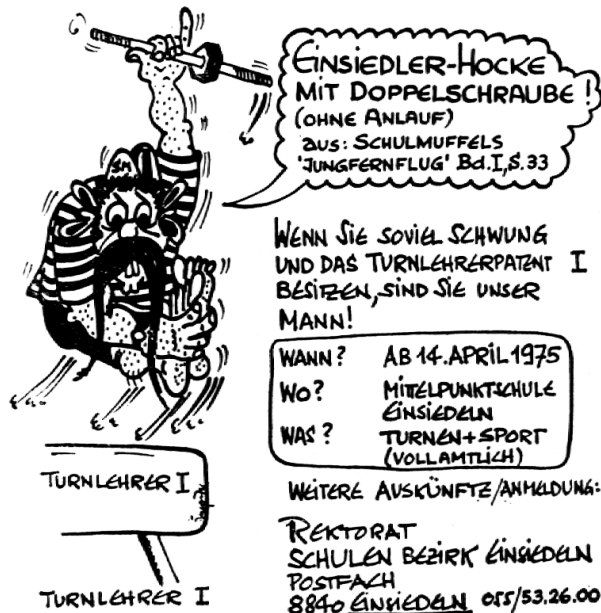 SM
EINSIEDLER-HOCKE
MIT DOPPELSCHRAUBE!
(OHNE ANLAUF)
aus: SCHULMUFFELS
'JUNGFERNFLUG' Bd.I, S.33
WENN SIE SOVIEL SCHWUNG
UND DAS TURNLEHRERPATENT I
BESITZEN, SIND SIE UNSER
MANN!
WANN? AB 14. APRIL 1975
WO? MITTELPUNKTSCHULE
EINSIEDELN
WAS? TURNEN+SPORT
(VOLLAMTLICH)
TURNLEHRER I
TURNLEHRER I
WEITERE AUSKÜNFTE/ANMELDUNG:
REKTORAT
SCHULEN BEZIRK EINSIEDELN
POSTFACH
8840 EINSIEDELN 055/53.26.00